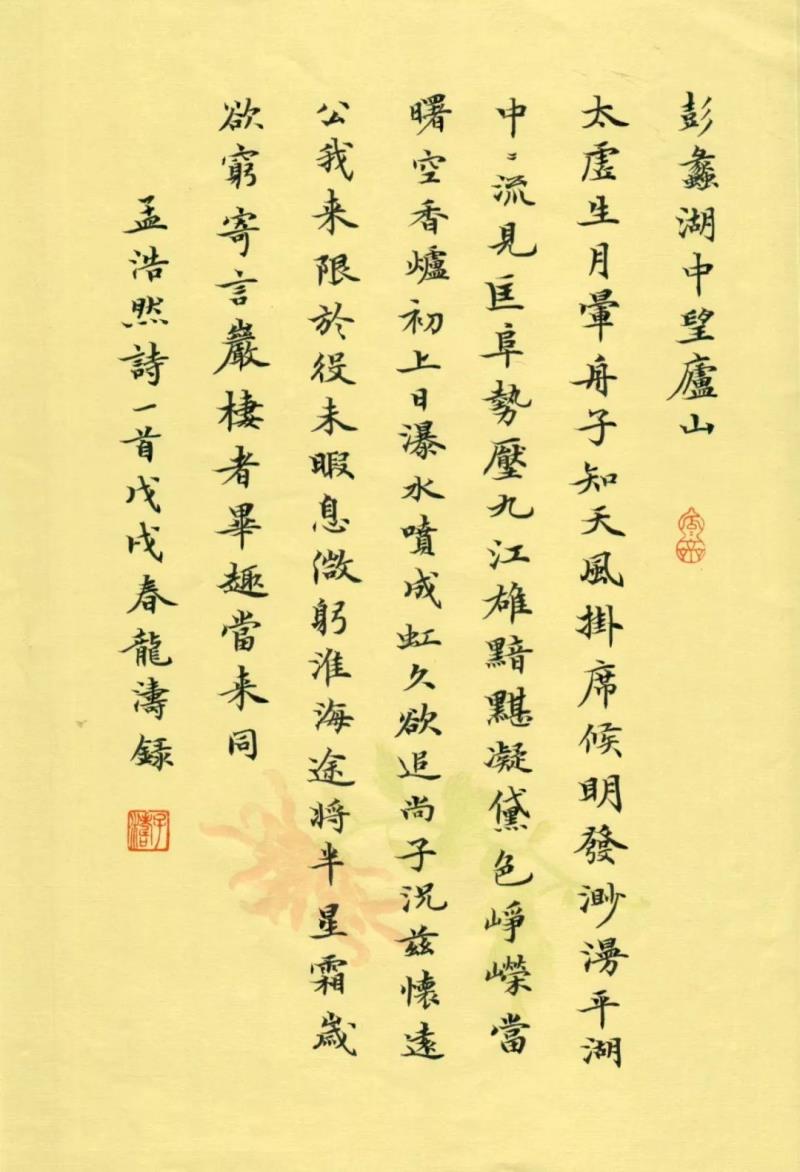 彭蠡湖中望廬山
太虛生月暈舟子知天風掛席候明發渺漫平湖
中〻流見匡阜勢壓九江雄黯黮凝黛色崢嶸當
曙空香爐初上日瀑水噴成虹久欲追尚子況茲懷遠
公我来限於役未暇息微躬淮海途将半星霜歲
欲窮寄言巖棲者畢趣當来同
孟浩然詩一首戊戌春龍濤録